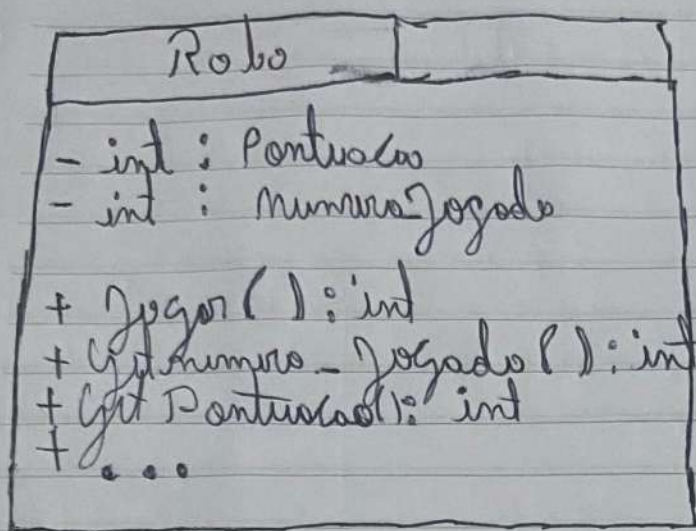 Robo
- int : Pontuacao
- int : numero_Jogado
+ Jogar( ) : int
+ Getnumero_Jogado( ) : int
+ Get Pontuacao(): int
+ ...